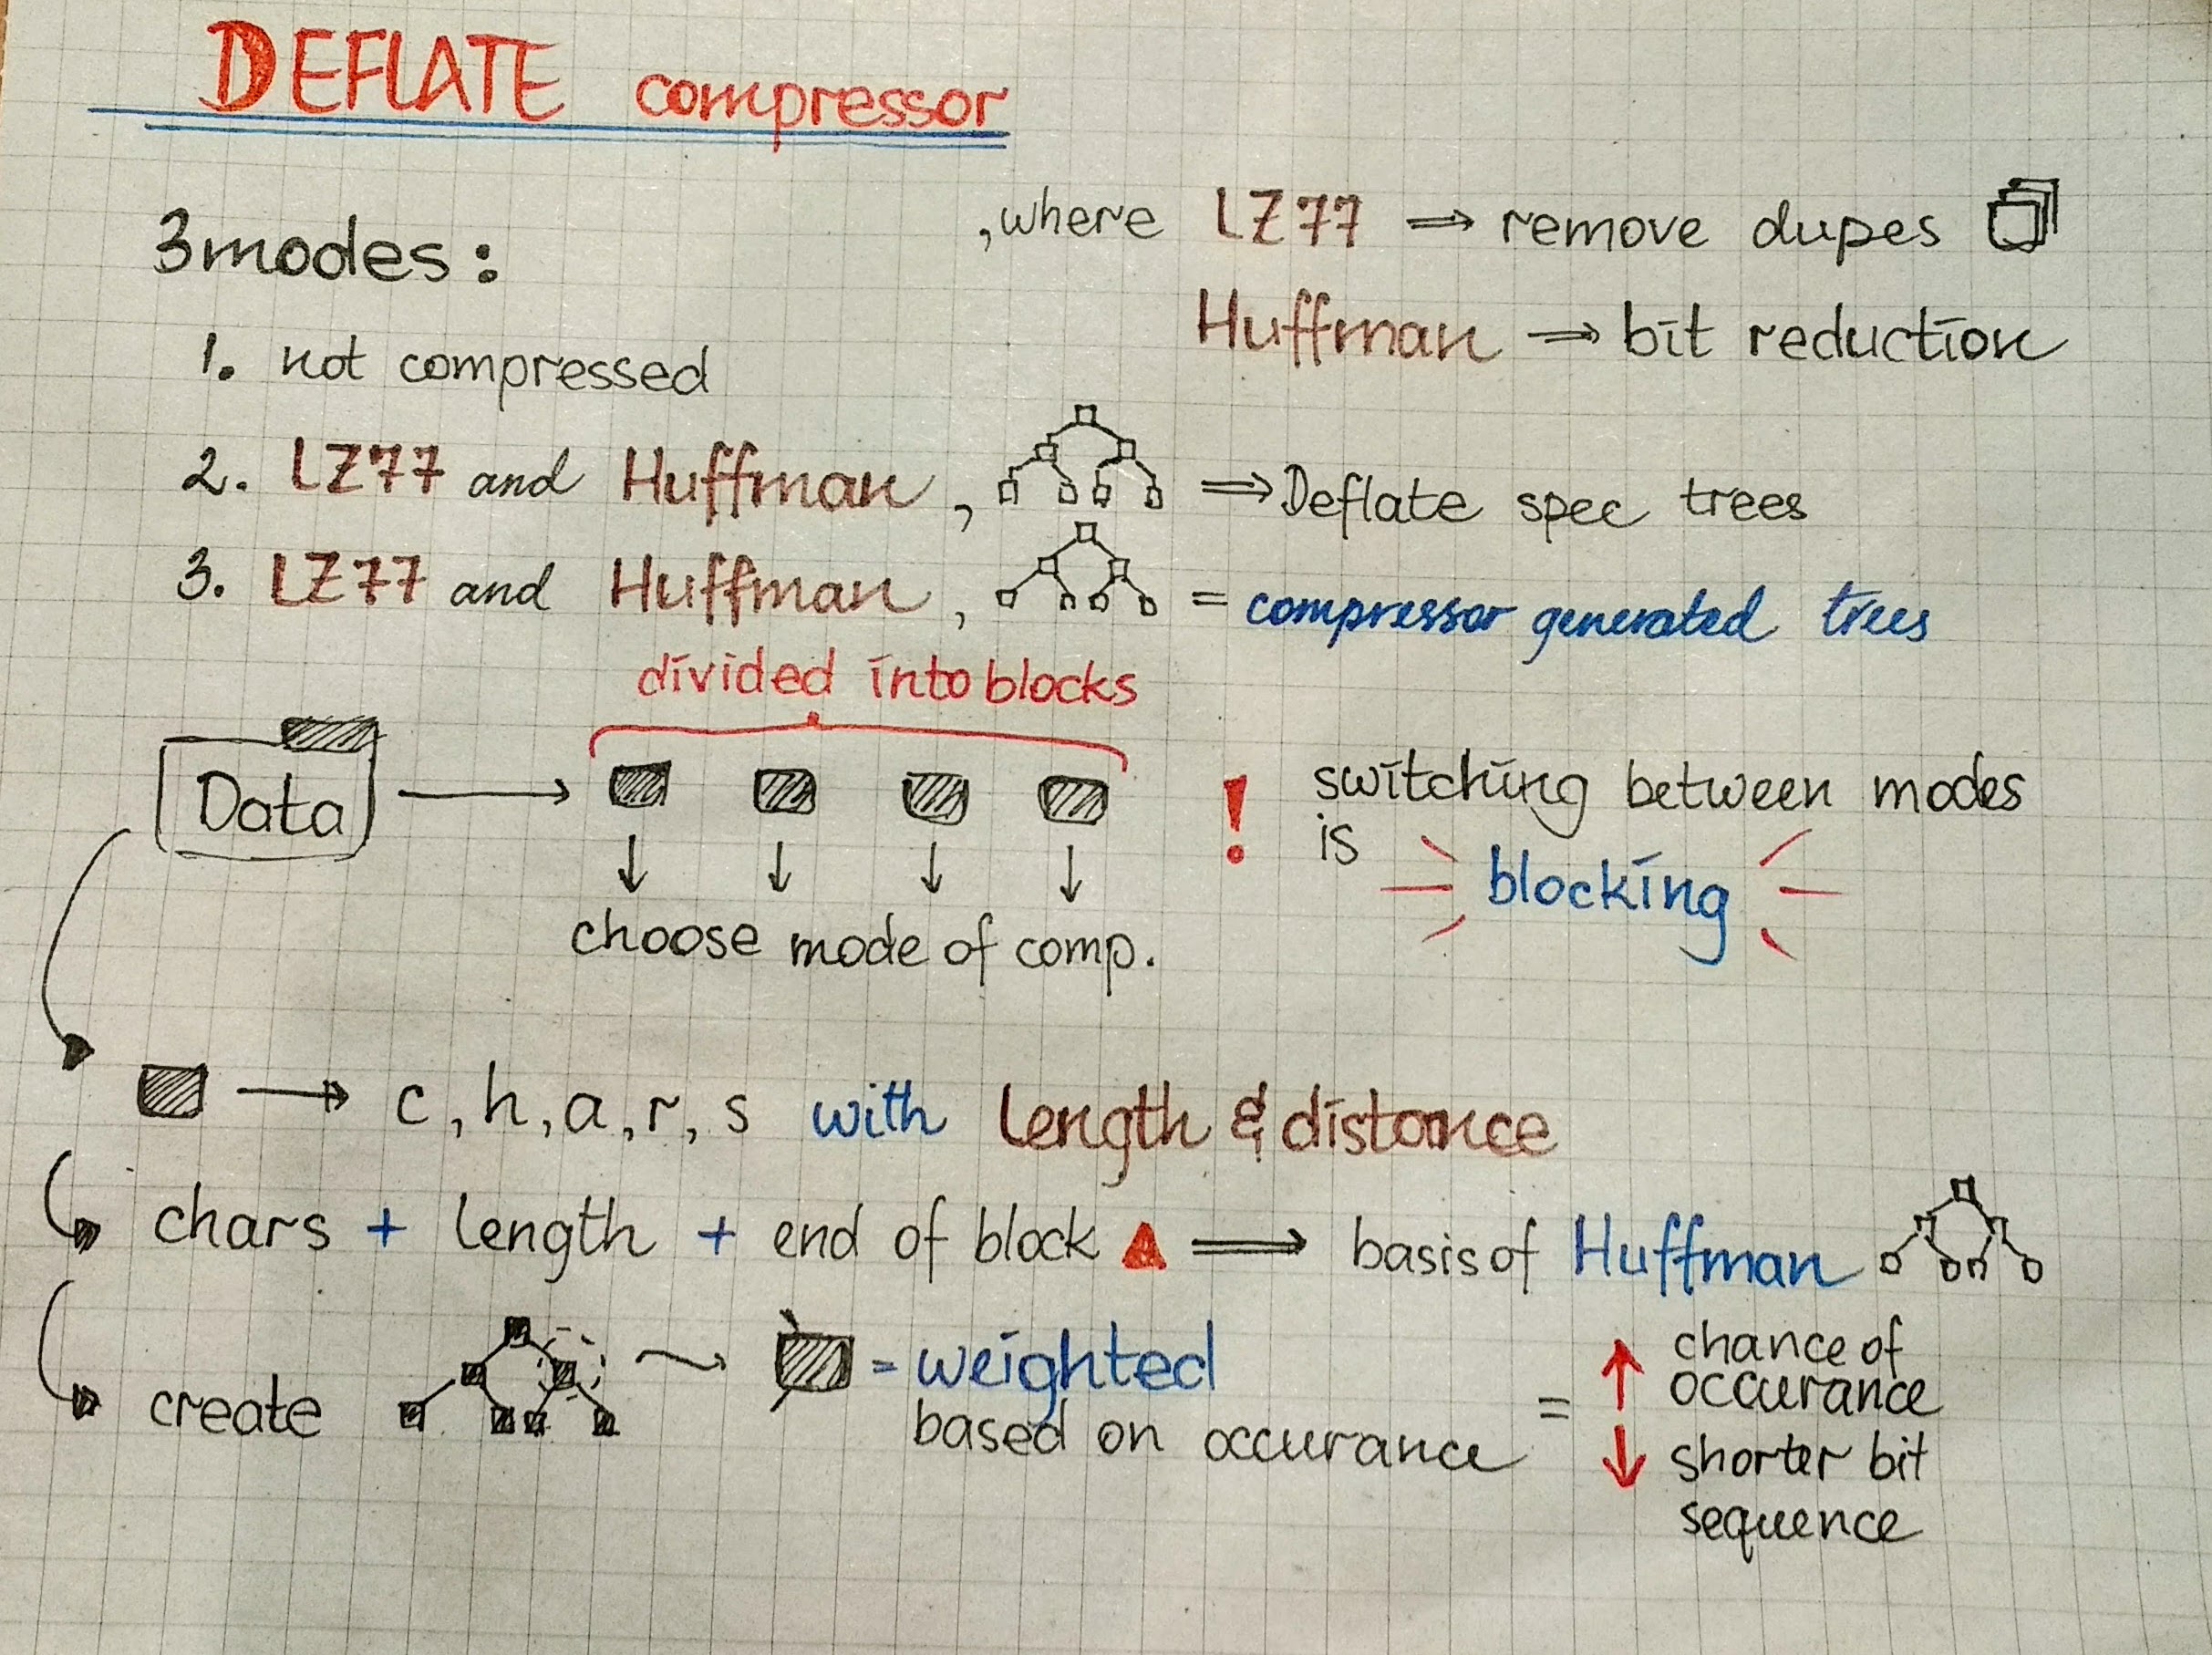 DEFLATE compressor
, where LZ77 ⇒ remove dupes
3 modes:
Huffman ⇒ bit reduction
1. not compressed
2. LZ77 and Huffman, ⇒ Deflate spec trees
3. LZ77 and Huffman, = compressor generated trees
divided into blocks
Data → ! switching between modes
is blocking
↓ ↓ ↓ ↓
choose mode of comp.
→ c, h, a, r, s with length & distance
chars + length + end of block ⇒ basis of Huffman
create = weighted
based on occurance
= ↑ chance of
occurance
↓ shorter bit
sequence